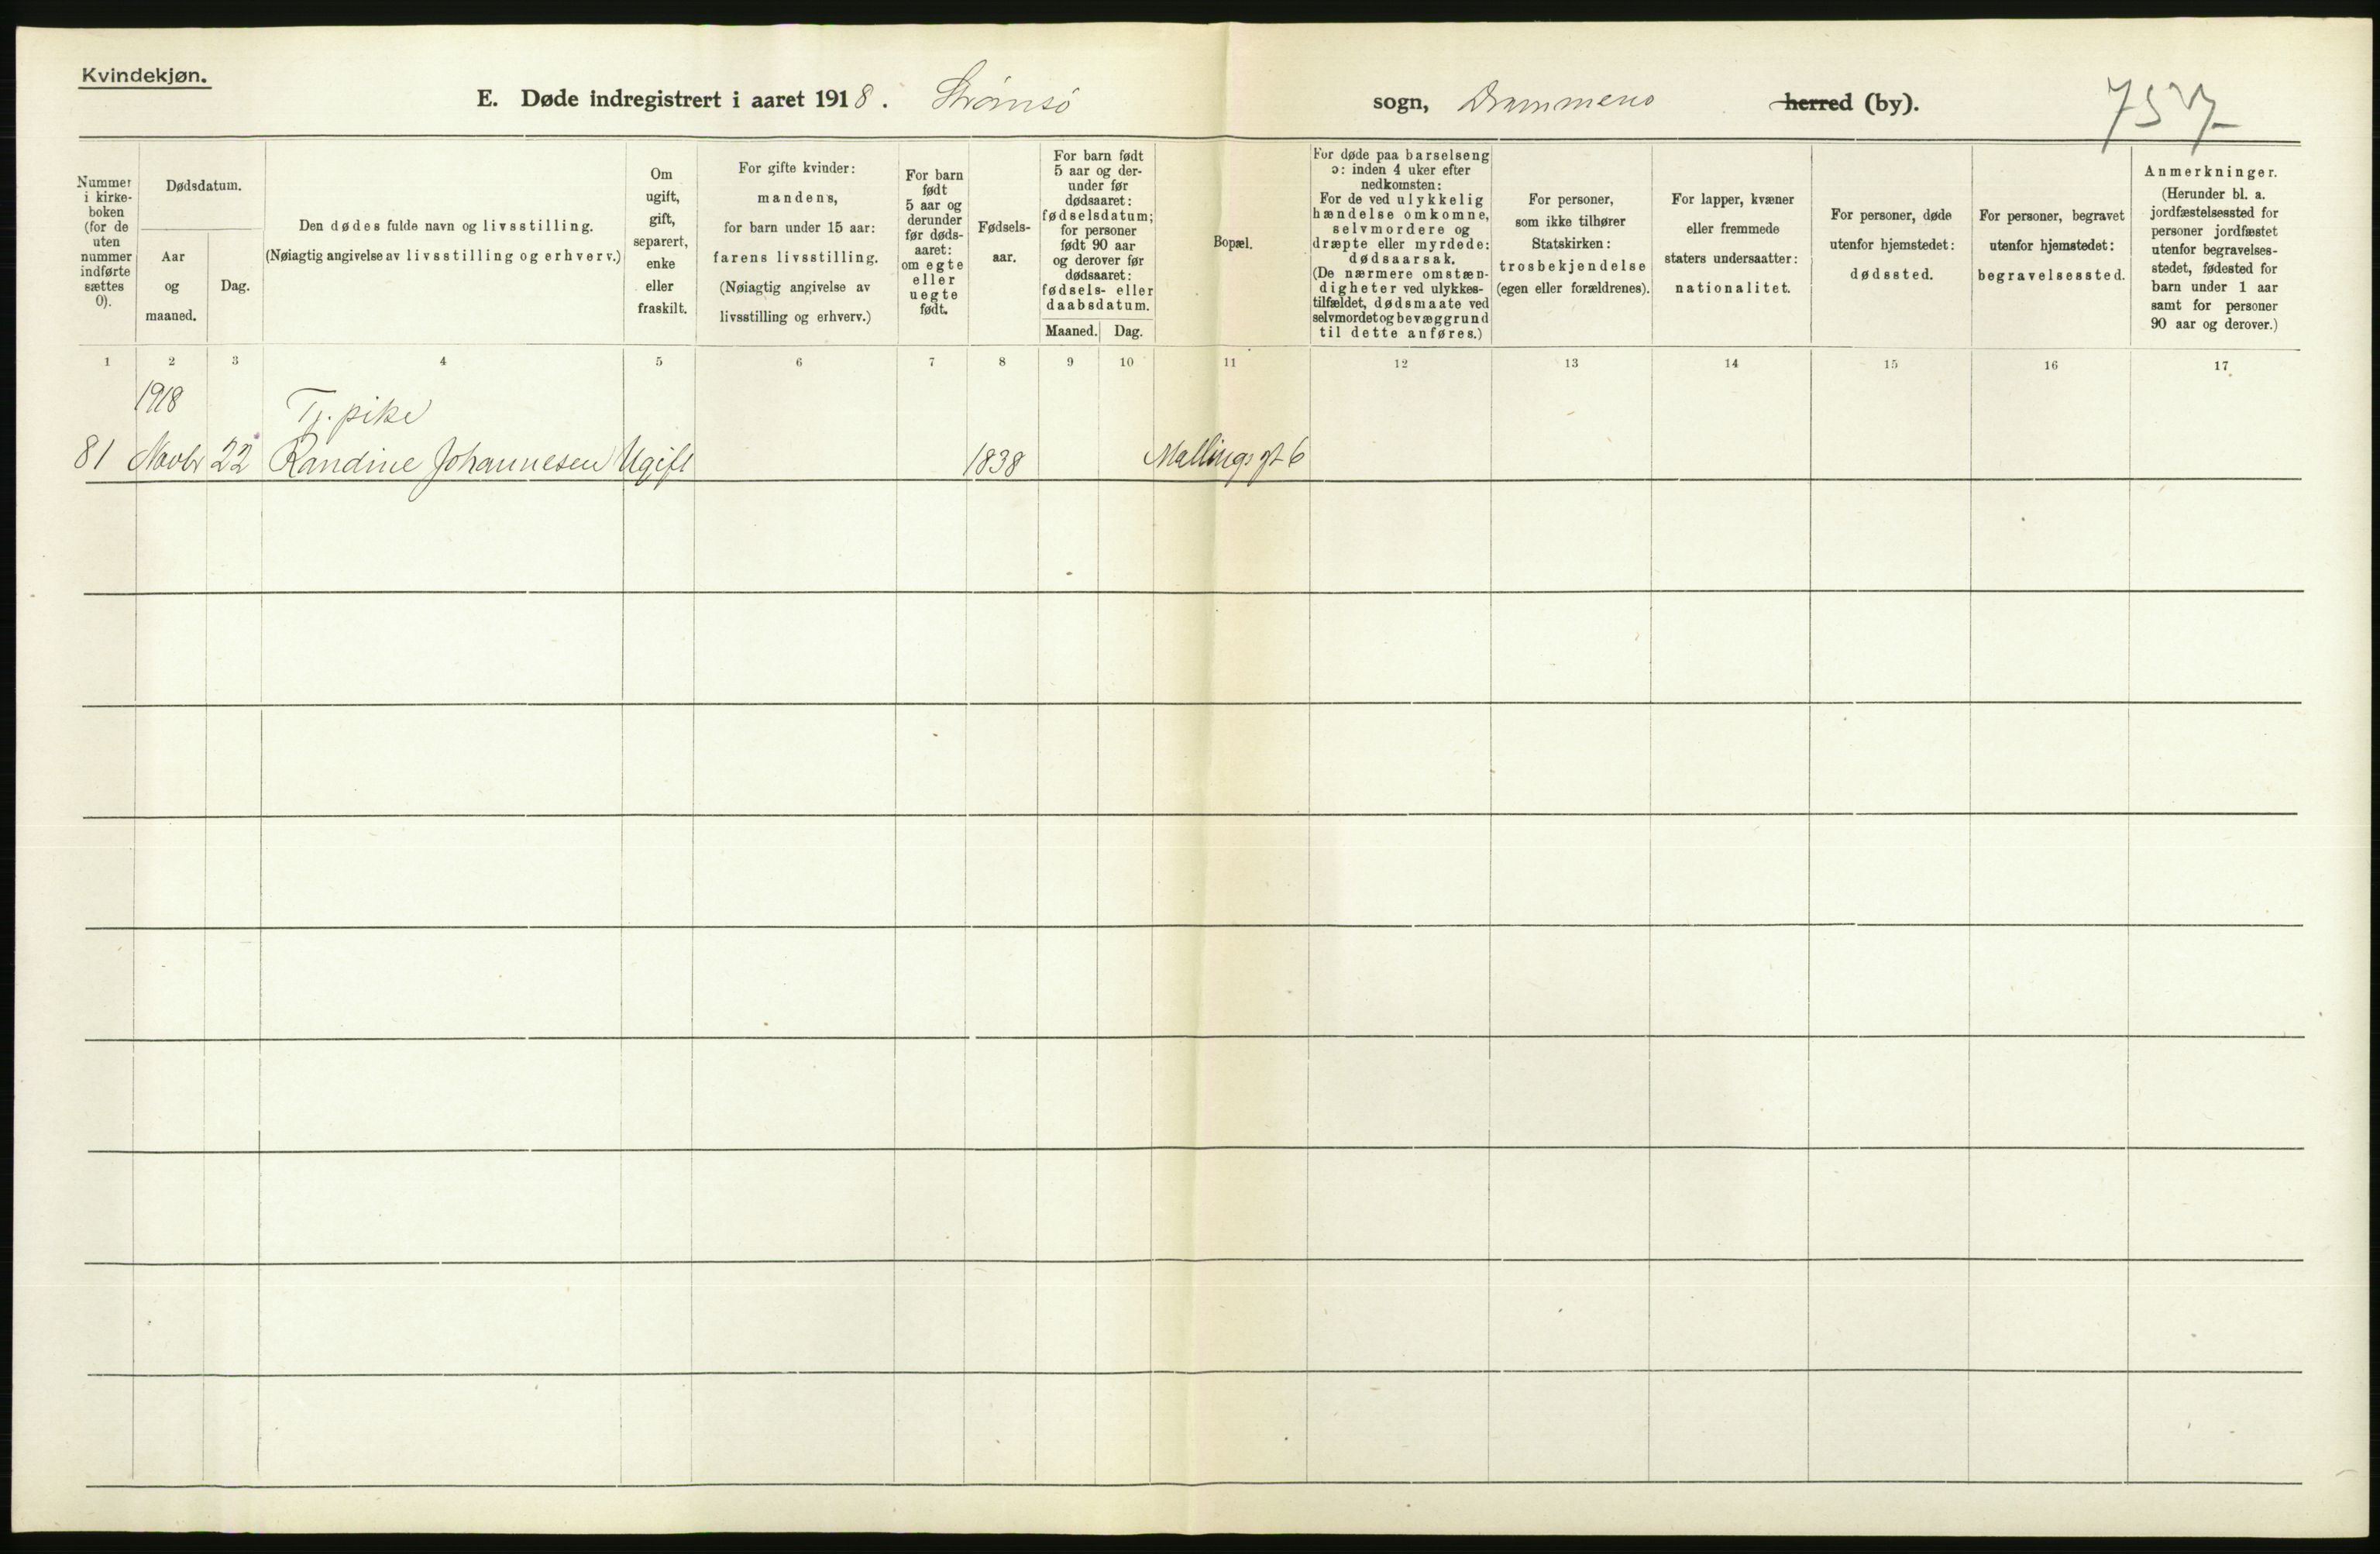 Kvindekjøn.
E. Døde indregistrert i aaret 1918. Strømsö sogn, Drammens herred (by).
Nummer i kirke-boken (for de uten nummer indførte sættes 0).
Dødsdatum.
Aar og maaned.
Dag.
Den dødes fulde navn og livsstilling.
(Nøiagtig angivelse av livsstilling og erhverv.)
Om ugift, gift, separert, enke eller fraskilt.
For gifte kvinder:
mandens,
for barn under 15 aar:
farens livsstilling.
(Nøiagtig angivelse av
livsstilling og erhverv.)
For barn født 5 aar og derunder før døds-aaret: om egte eller uegte født.
Fødsels-aar.
For barn født
5 aar og der-
under før
dødsaaret:
fødselsdatum;
for personer
født 90 aar
og derover før
dødsaaret:
fødsels- eller
daabsdatum.
Maaned. Dag.
Bopæl.
For døde paa barselseng
ɔ: inden 4 uker efter
nedkomsten:
For de ved ulykkelig
hændelse omkomne,
selvmordere og
dræpte eller myrdede:
dødsaarsak.
(De nærmere omstæn-
digheter ved ulykkes-
tilfældet, dødsmaate ved
selvmordet og bevæggrund
til dette anføres.)
For personer,
som ikke tilhører
Statskirken:
trosbekjendelse
(egen eller forældrenes).
For lapper, kvæner
eller fremmede
staters undersaatter:
nationalitet.
For personer, døde
utenfor hjemstedet:
dødssted.
For personer, begravet
utenfor hjemstedet:
begravelsessted.
Anmerkninger.
(Herunder bl. a.
jordfæstelsessted for
personer jordfæstet
utenfor begravelses-
stedet, fødested for
barn under 1 aar
samt for personer
90 aar og derover.)
1 2 3 4 5 6 7 8 9 10 11 12 13 14 15 16 17
1918 Tj. pike
81 Novbr 22 Randine Johannesen Ugift 1838 Mallings gt 6